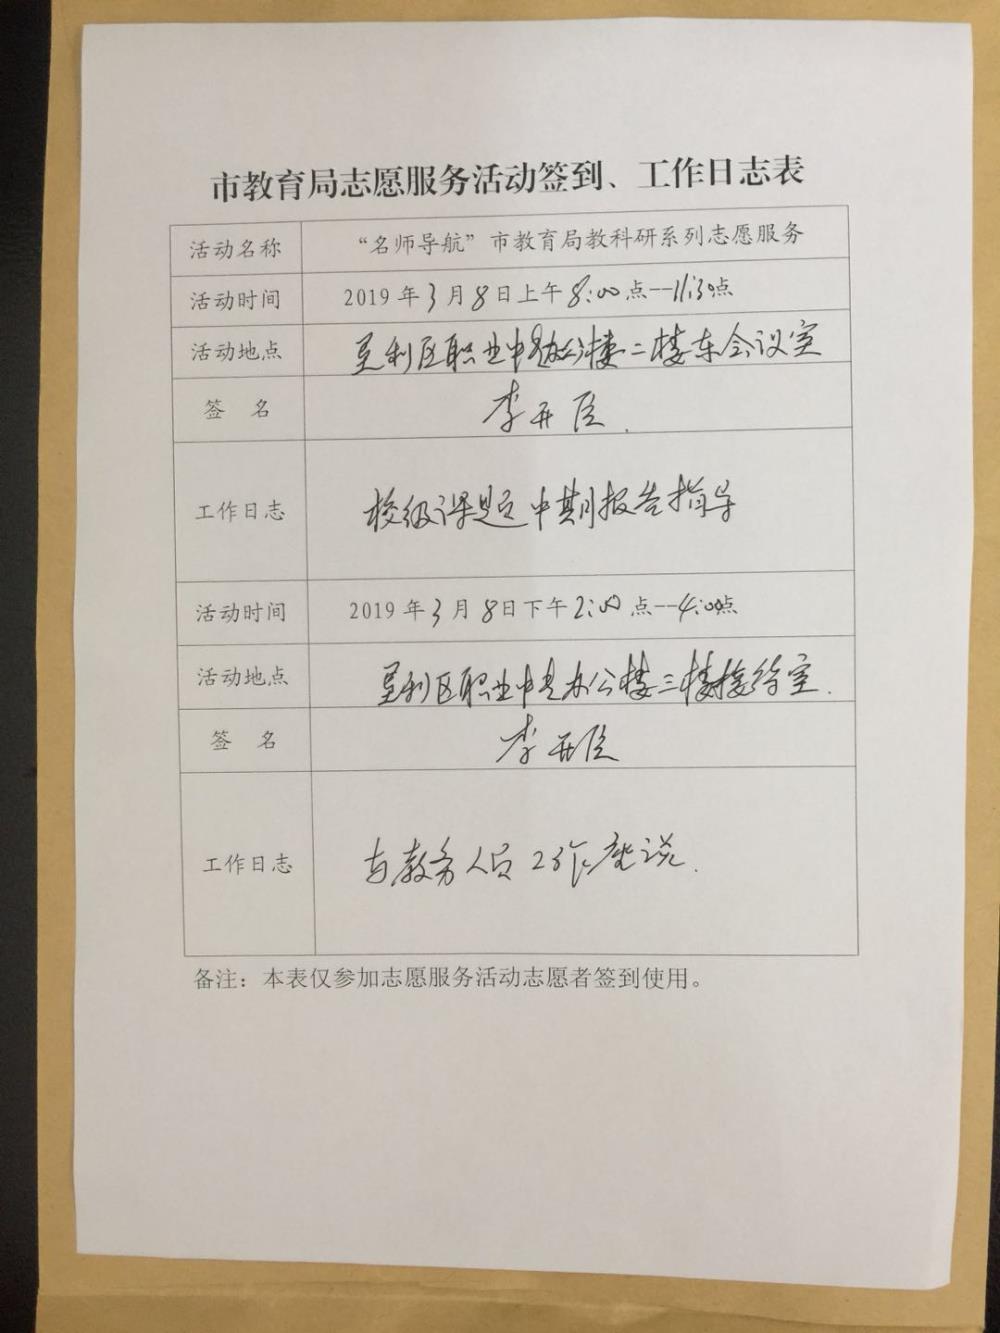 市教育局志愿服务活动签到、工作日志表
活动名称 “名师导航”市教育局教科研系列志愿服务
活动时间 2019年3月8日上午8:00点--11:30点
活动地点 垦利区职业中专办公楼二楼东会议室
签 名 李开
工作日志 校级课题中期报告指导
活动时间 2019年3月8日下午2:00点--4:00点
活动地点 垦利区职业中专办公楼三楼接待室.
签 名 李开
工作日志 与教务人员工作座谈.
备注：本表仅参加志愿服务活动志愿者签到使用。